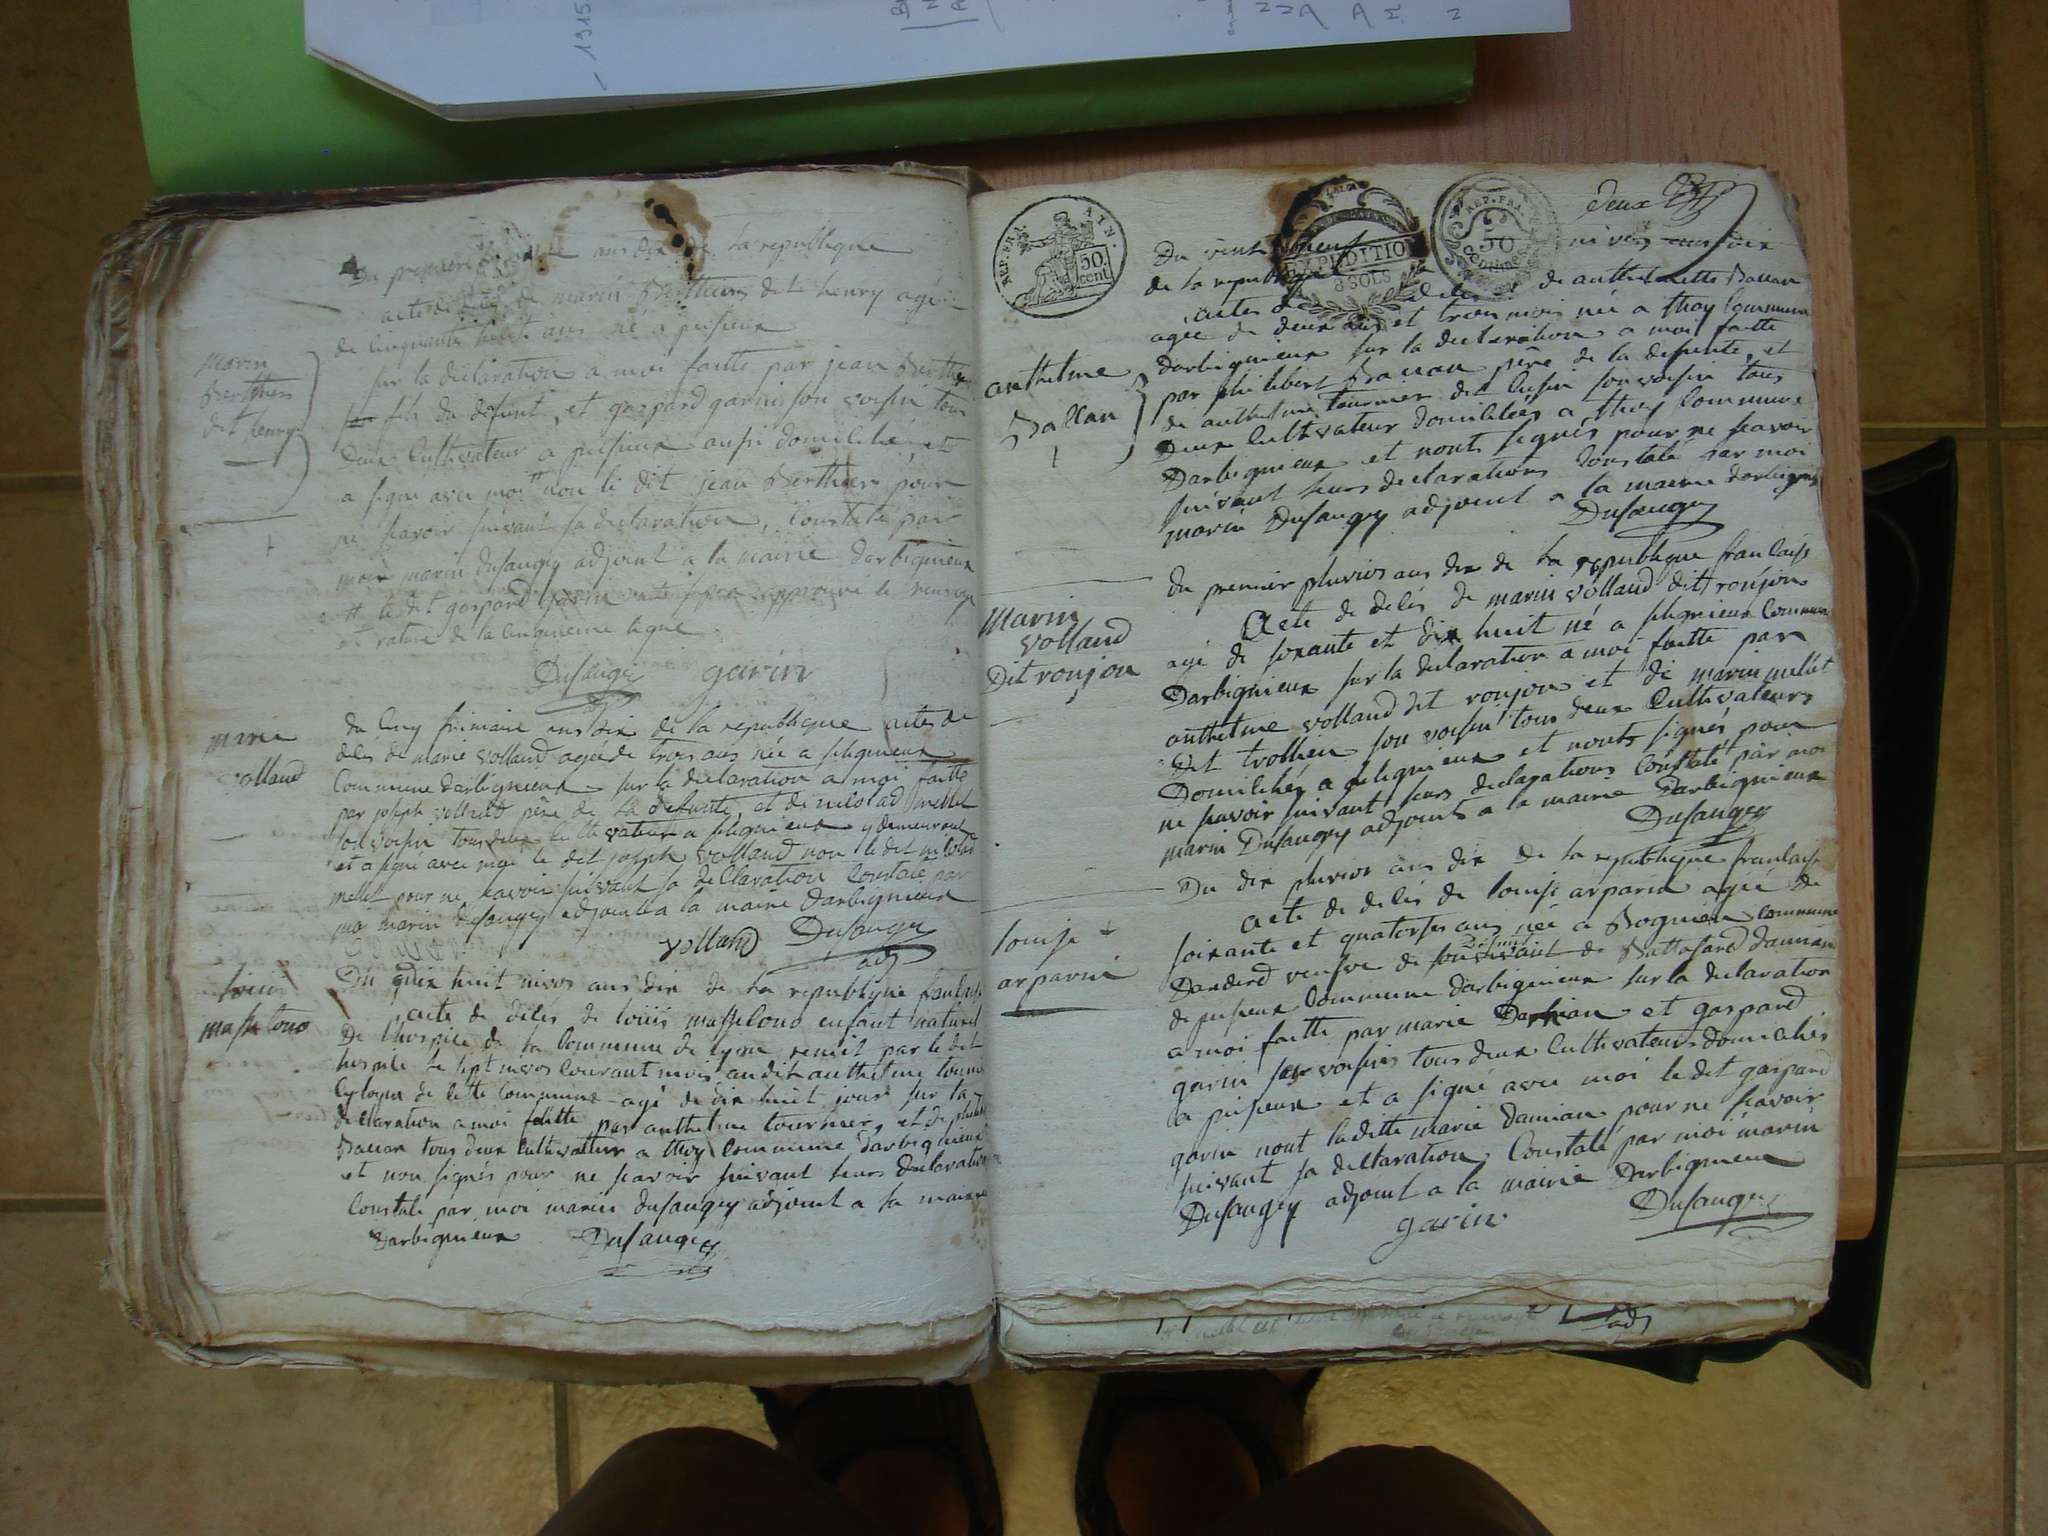 du premier ans dix de la republique
acte de délés de marin Berthier dit henry agé
de Cinquante huit ans né a peisieux
sur la déclaration a moi faitte par jean Berthier
fils du défunt, et gaspard garin son voisin tous
deux Cultivateur a peisieux aussi domiciliés, et
a signé avec moi non le dit jean Berthier pour
ne scavoir suivant sa déclaration, Constaté par
moi marin Dusaugey adjoint a la mairie darbignieux
le dit gaspard garin approuvé le renvoye
et rature de la Cinquieme ligne
Dusaugey garin
adj
Marin
Berthier
dit henry
du Cinq frimaire ans dix de la republique actes de
délés de marie volland agée de trois ans née a selignieux
Commune darbignieux sur la declaration a moi faitte
par joseph volland père de la défunte, et de nicolad mellet
son voisin tous deux Cultivateur a selignieux y demeurant
et a signé avec moi le dit joseph volland non le dit nicolad
mellet pour ne scavoir suivant sa declaration Constaté par
moi marin dusaugey adjoint a la mairie darbignieux
volland Dusaugey
adj
marie
volland
Du dix huit nivos ans dix de la republique francaise
acte de délés de louis masselono enfant naturel
De lhospice de la Commune de lyon remit par le dit
hospice le sept nivos Courant mois audit anthelme tournier
de cette Commune agé de dix huit jour sur la
déclaration a moi faitte par anthelme tournier, et de philibert
Ballan tous deux Cultivatteur a thoy Commune darbignieux
et non signés pour ne scavoir suivant leurs declaration
Constaté par moi marin dusaugey adjoint a la mairie
Darbignieux Dusaugey
louis
masselono
REP. FRA.
50
cent
EXPEDITION
8 SOLS
REP. FRA.
50
Centimes
deux
Du vint neuf nivos ans dix
de la republique
actes de délés de anthelmette Ballan
agée de deux ans et trois mois née a thoy Commune
darbignieux sur la declaration a moi faitte
par philibert Ballan père de la defunte, et
de anthelme tournier dit son voisin tous
Deux Cultivateur domiciliés a thoy Commune
Darbignieux et nont signés pour ne scavoir
suivant leurs declarations Constaté par moi
marin Dusaugey adjoint a la mairie darbignieux
Dusaugey
anthelme
Ballan
du premier pluvios ans dix de la republique francaise
Acte de délés de marin volland dit ronjon
agé de soixante et dix huit né a selignieux Commune
Darbignieux sur la declaration a moi faitte par
anthelme volland dit ronjon et de marin mellet
dit trollieu son voisin tous deux Cultivateurs
Domiciliés a selignieux et nonts signés pour
ne scavoir suivant leurs declarations Constaté par moi
marin Dusaugey adjoints a la mairie Darbignieux
Dusaugey
Marin
volland
Dit ronjon
Du dix pluvios ans dix de la republique francaise
acte de délés de louise arparin agée de
soixante et quatorses ans née a Rognieu Commune
Dandert veufve de défunt Battasard damian
de peisieux Commune darbignieux sur la declaration
a moi faitte par marie Damian et gaspard
garin son voisins tous deux Cultivateurs domiciliés
a peisieux et a signé avec moi le dit gaspard
garin nont laditte marie damian pour ne scavoir
suivant sa declaration, Constaté par moi marin
Dusaugey adjoint a la mairie Darbignieux
garin Dusaugey
louise
arparin
adj
1915